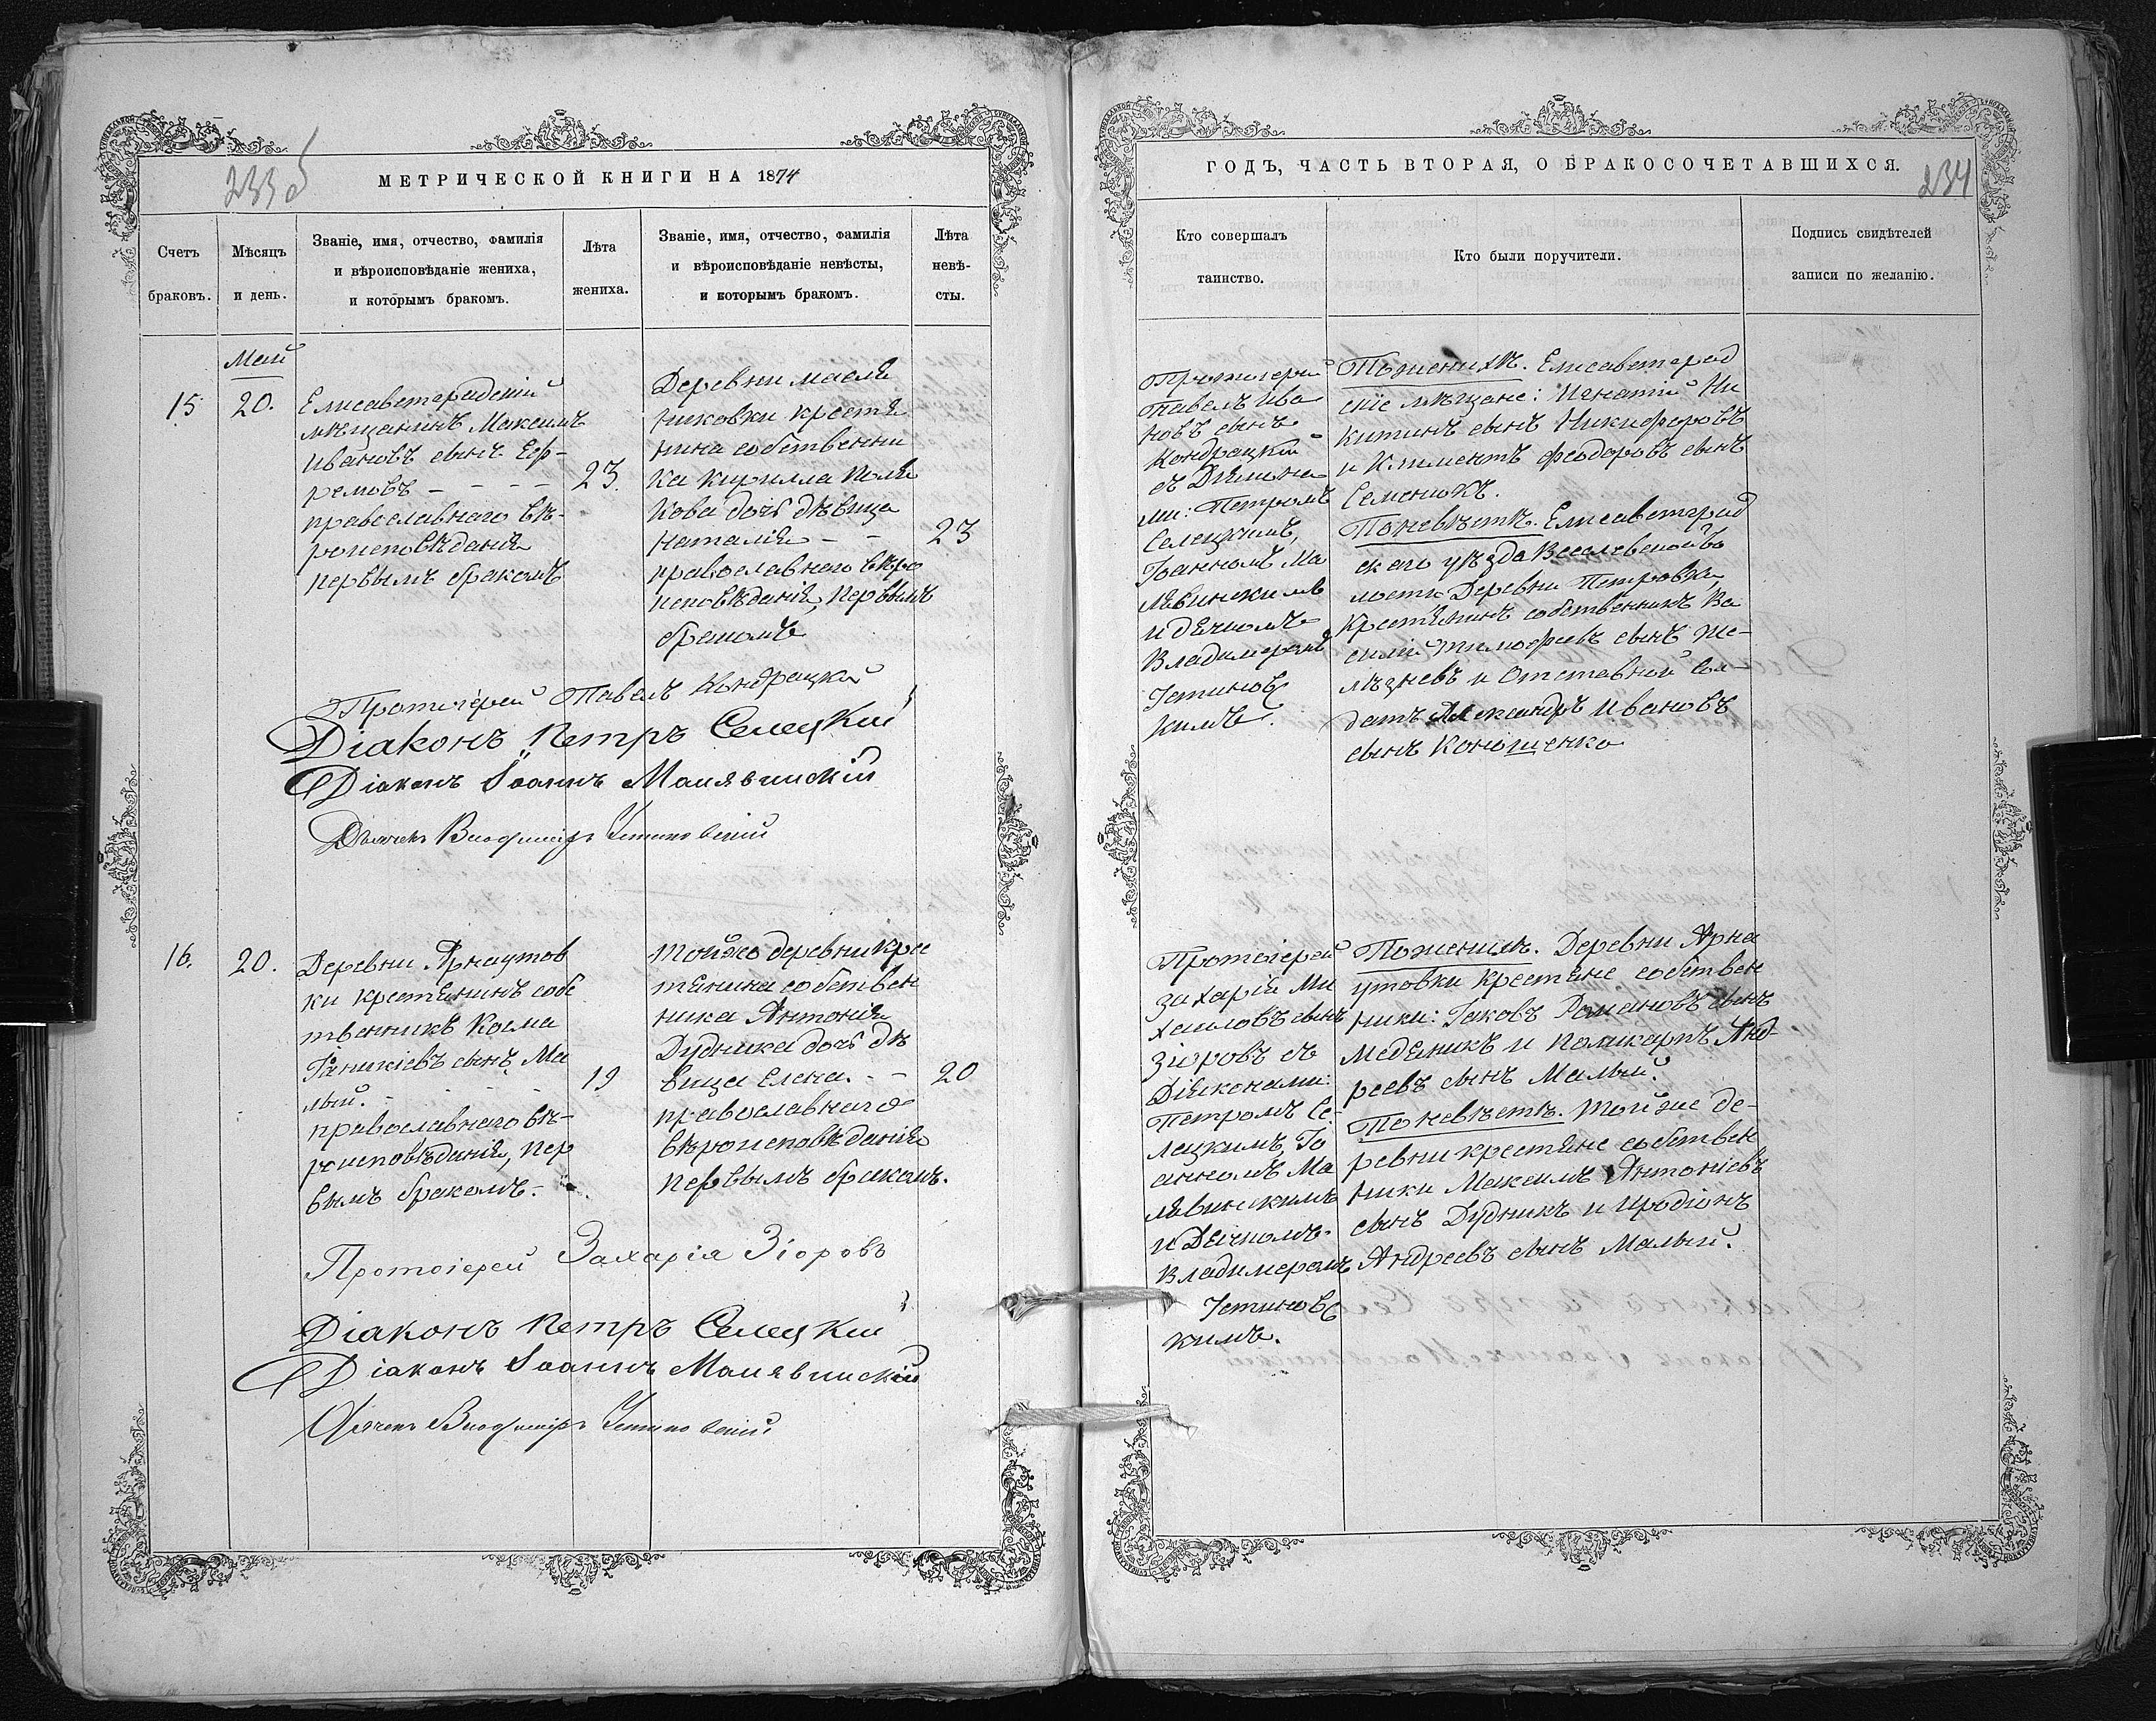 233об
МЕТРИЧЕСКОЙ КНИГИ НА 1874
Счетъ
браковъ.
Мѣсяцъ
и день.
Званіе, имя, отчество, фамилія
и вѣроисповѣданіе жениха,
и которымъ бракомъ.
Лѣта
жениха.
Званіе, имя, отчество, фамилія
и вѣроисповѣданіе невѣсты,
и которымъ бракомъ.
Лѣта
невѣ-
сты.
Май
15
20.
Елисаветградскій
мѣщанинъ Максимъ
Ивановъ сынъ Еф-
ремовъ - - - -
православнаго вѣ-
роисповѣданія
первымъ бракомъ
23.
Деревни Масля
никовки крестья
нина собственни
ка Кирилла Поля
кова дочь дѣвица
Наталія - -
православнаго вѣро
исповѣданія, первымъ
бракомъ
23
Протоіерей Павелъ Кондрацкій
Діаконъ Петръ Селецкій
Діаконъ Іоаннъ Малявинскій
Дьячекъ Владиміръ Устиновскій
16.
20.
Деревни Арнаутов
ки крестьянинъ собс
твенникъ Косма
Іаникіевъ сынъ Ма
лый. - - -
православнаго вѣ-
роисповѣданія, пер
вымъ бракомъ.
19
Тойже деревни крес
тьянина собствен
ника Антонія
Дудника дочь дѣ
вица Елена. - -
православнаго
вѣроисповѣданія
первымъ бракомъ.
20
Протоіерей Захарія Зіоровъ
Діаконъ Петръ Селецкій
Діаконъ Іоаннъ Малявинскій
Дьячекъ Владиміръ Устиновскій
ГОДЪ, ЧАСТЬ ВТОРАЯ, О БРАКОСОЧЕТАВШИХСЯ.
234
Кто совершалъ
таинство.
Кто были поручители.
Подпись свидѣтелей
записи по желанію.
Протоіерей
Павелъ Ива
новъ сынъ
Кондрацкій
съ Діякона
ми: Петромъ
Селецкимъ,
Іоанномъ Ма
лявинскимъ
и дьячкомъ
Владимеромъ
Устиновс
кимъ.
По женихѣ. Елисаветград
скіе мѣщане: Игнатій Ни
китинъ сынъ Никифоровъ
и Климентъ Феодоровъ сынъ
Семенюкъ.
По невѣстѣ. Елисаветград
скаго уѣзда Веселевской во
лости Деревни Петровки,
крестьянинъ собственникъ Ва
силій Тимофеевъ сынъ Же-
лѣзневъ и Отставной Сол-
датъ Александръ Ивановъ
сынъ Кононенко
Протоіерей
Захарій Ми
хаиловъ сынъ
Зіоровъ съ
Діяконами:
Петромъ Се-
лецкимъ, Іо
анномъ Ма
лявинскимъ
и Дьячкомъ
Владимеромъ
Устиновс
кимъ.
По женихѣ. Деревни Арна
утовки крестьяне собствен
ники: Іаковъ Романовъ сынъ
Медяникъ и Поликарпъ Анд-
реевъ сынъ Малый.
По невѣстѣ. Той же де-
ревни крестьяне собствен
ники Максимъ Антоніевъ
сынъ Дудникъ и Иродіонъ
Андреевъ сынъ Малый.